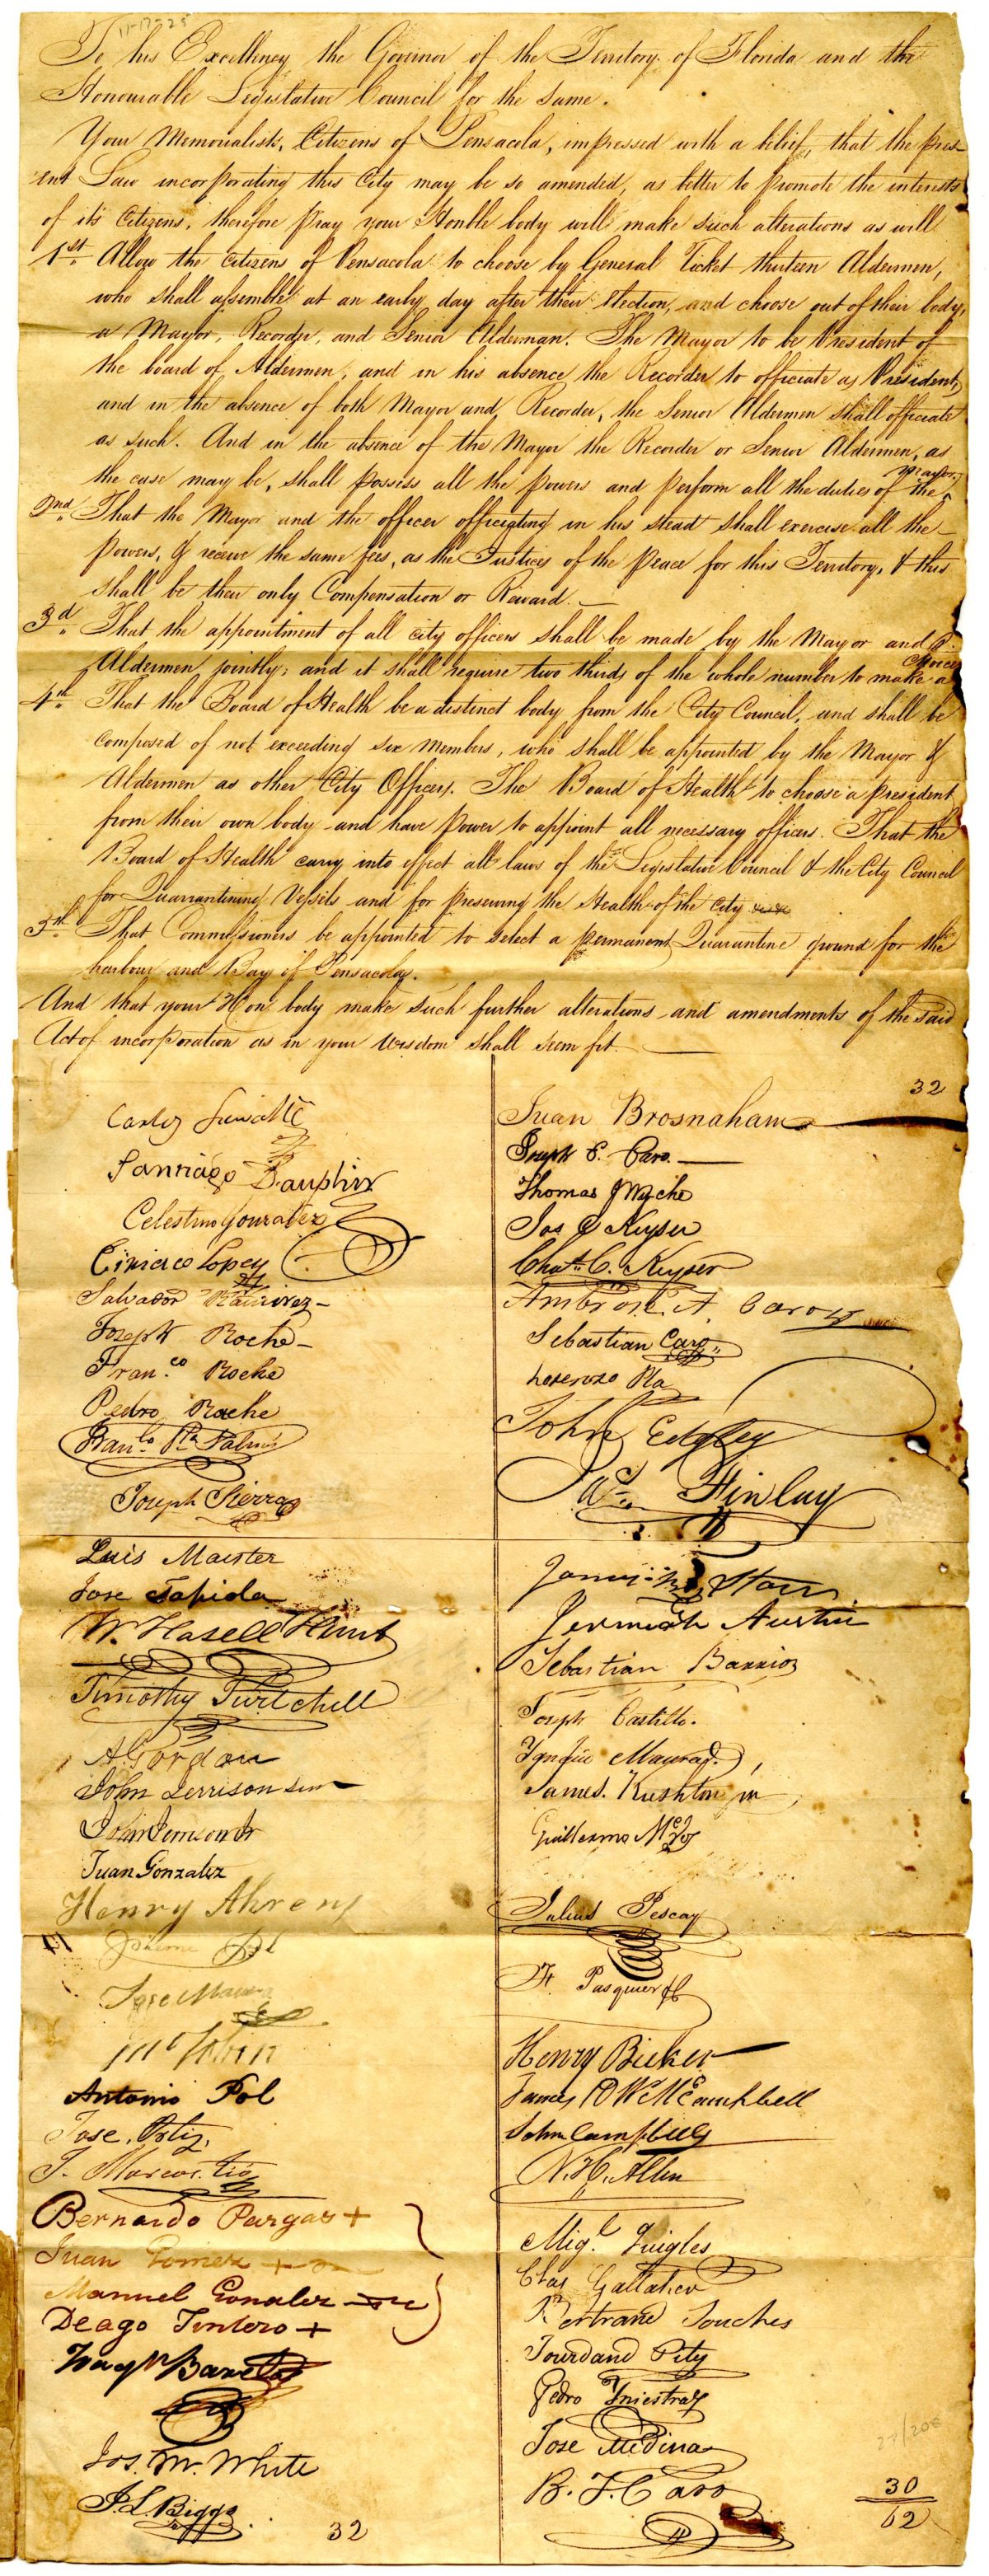 11-17-25
To his Excellency the Governor of the Territory of Florida and the
Honourable Legislative Council for the same.
Your Memorialists, Citizens of Pensacola, impressed with a belief, that the pres-
ent Law incorporating this City may be so amended, as better to promote the interests
of its Citizens, therefore pray your Honble body will make such alterations as will
1st. Allow the Citizens of Pensacola to choose by General Ticket thirteen Aldermen,
who shall assemble at an early day after their election, and choose out of their body,
a Mayor, Recorder, and Senior Alderman. The Mayor to be President of
the board of Aldermen, and in his absence the Recorder to officiate as President,
and in the absence of both Mayor and Recorder, the Senior Aldermen shall officiate
as such. And in the absence of the Mayor the Recorder or Senior Aldermen, as
the case may be, shall possess all the powers and perform all the duties of the Mayor.
2nd. That the Mayor and the officer officiating in his stead shall exercise all the
powers, & receive the same fees, as the Justices of the Peace for this Territory, & this
shall be their only Compensation or Reward.
3d. That the appointment of all city officers shall be made by the Mayor and
Aldermen jointly; and it shall require two thirds of the whole number to make a choice
4th. That the Board of Health be a distinct body from the City Council, and shall be
composed of not exceeding six members, who shall be appointed by the Mayor &
Aldermen as other City Officers. The Board of Health to choose a president
from their own body and have power to appoint all necessary officers. That the
Board of Health carry into effect all laws of the Legislative Council & the City Council
for Quarrantining Vessels and for preserving the Health of the City
5th. That Commissioners be appointed to select a permanent Quarantine ground for the
harbour and Bay of Pensacola.
And that your Hon body make such further alterations and amendments of the said
Act of incorporation as in your wisdom shall seem fit.
32
Carlos
Santiago Dauphin
Celestino Gonzalez
Ciriaco Lopez
Salvador Ramirez
Joseph Roche
Fran.co Roche
Pedro Roche
Palmes
Joseph Sierra
Juan Brosnaham
Joseph E. Caro.
Thomas J Wyche
Jos Keyser
C. Keyser
Ambrose. A. Caro
Sebastian Caro
Lorenzo Pla
John Edgley
Finlay
Luis Maister
Jose Tapiola
W. Hasell Hunt
Timothy Twitchell
A. Gordon
John Jerrison Sen
John Jerrison Jr
Juan Gonzalez
Henry Ahrens
Antonio Pol
Jose Ortiz.
Bernardo Pargas +
Juan Gomez +
Manuel Gonzalez
Deago Tintero +
Jos. M. White
J. L. Biggs
32
Starr
Jermiah Austin
Sebastian Barrios
Joseph Castillo.
James. Rushton
Guillermo McVoy
Julius Pescay
H. Pasquier
Henry Bicker
James
John Campbell
N. H. Allen
Mig.l Quigles
Chas Gallaher
Bertrand Souches
Jourdand Pity
Pedro Yniestra
Jose Medina
B. J. Caro
27/208
30
62